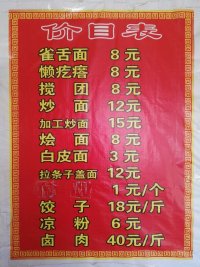 价目表
雀舌面 8元
懒疙瘩 8元
搅团 8元
炒面 12元
加工炒面 15元
烩面 8元
白皮面 3元
拉条子盖面 12元
1元/个
饺子 18元/斤
凉粉 6元
卤肉 40元/斤